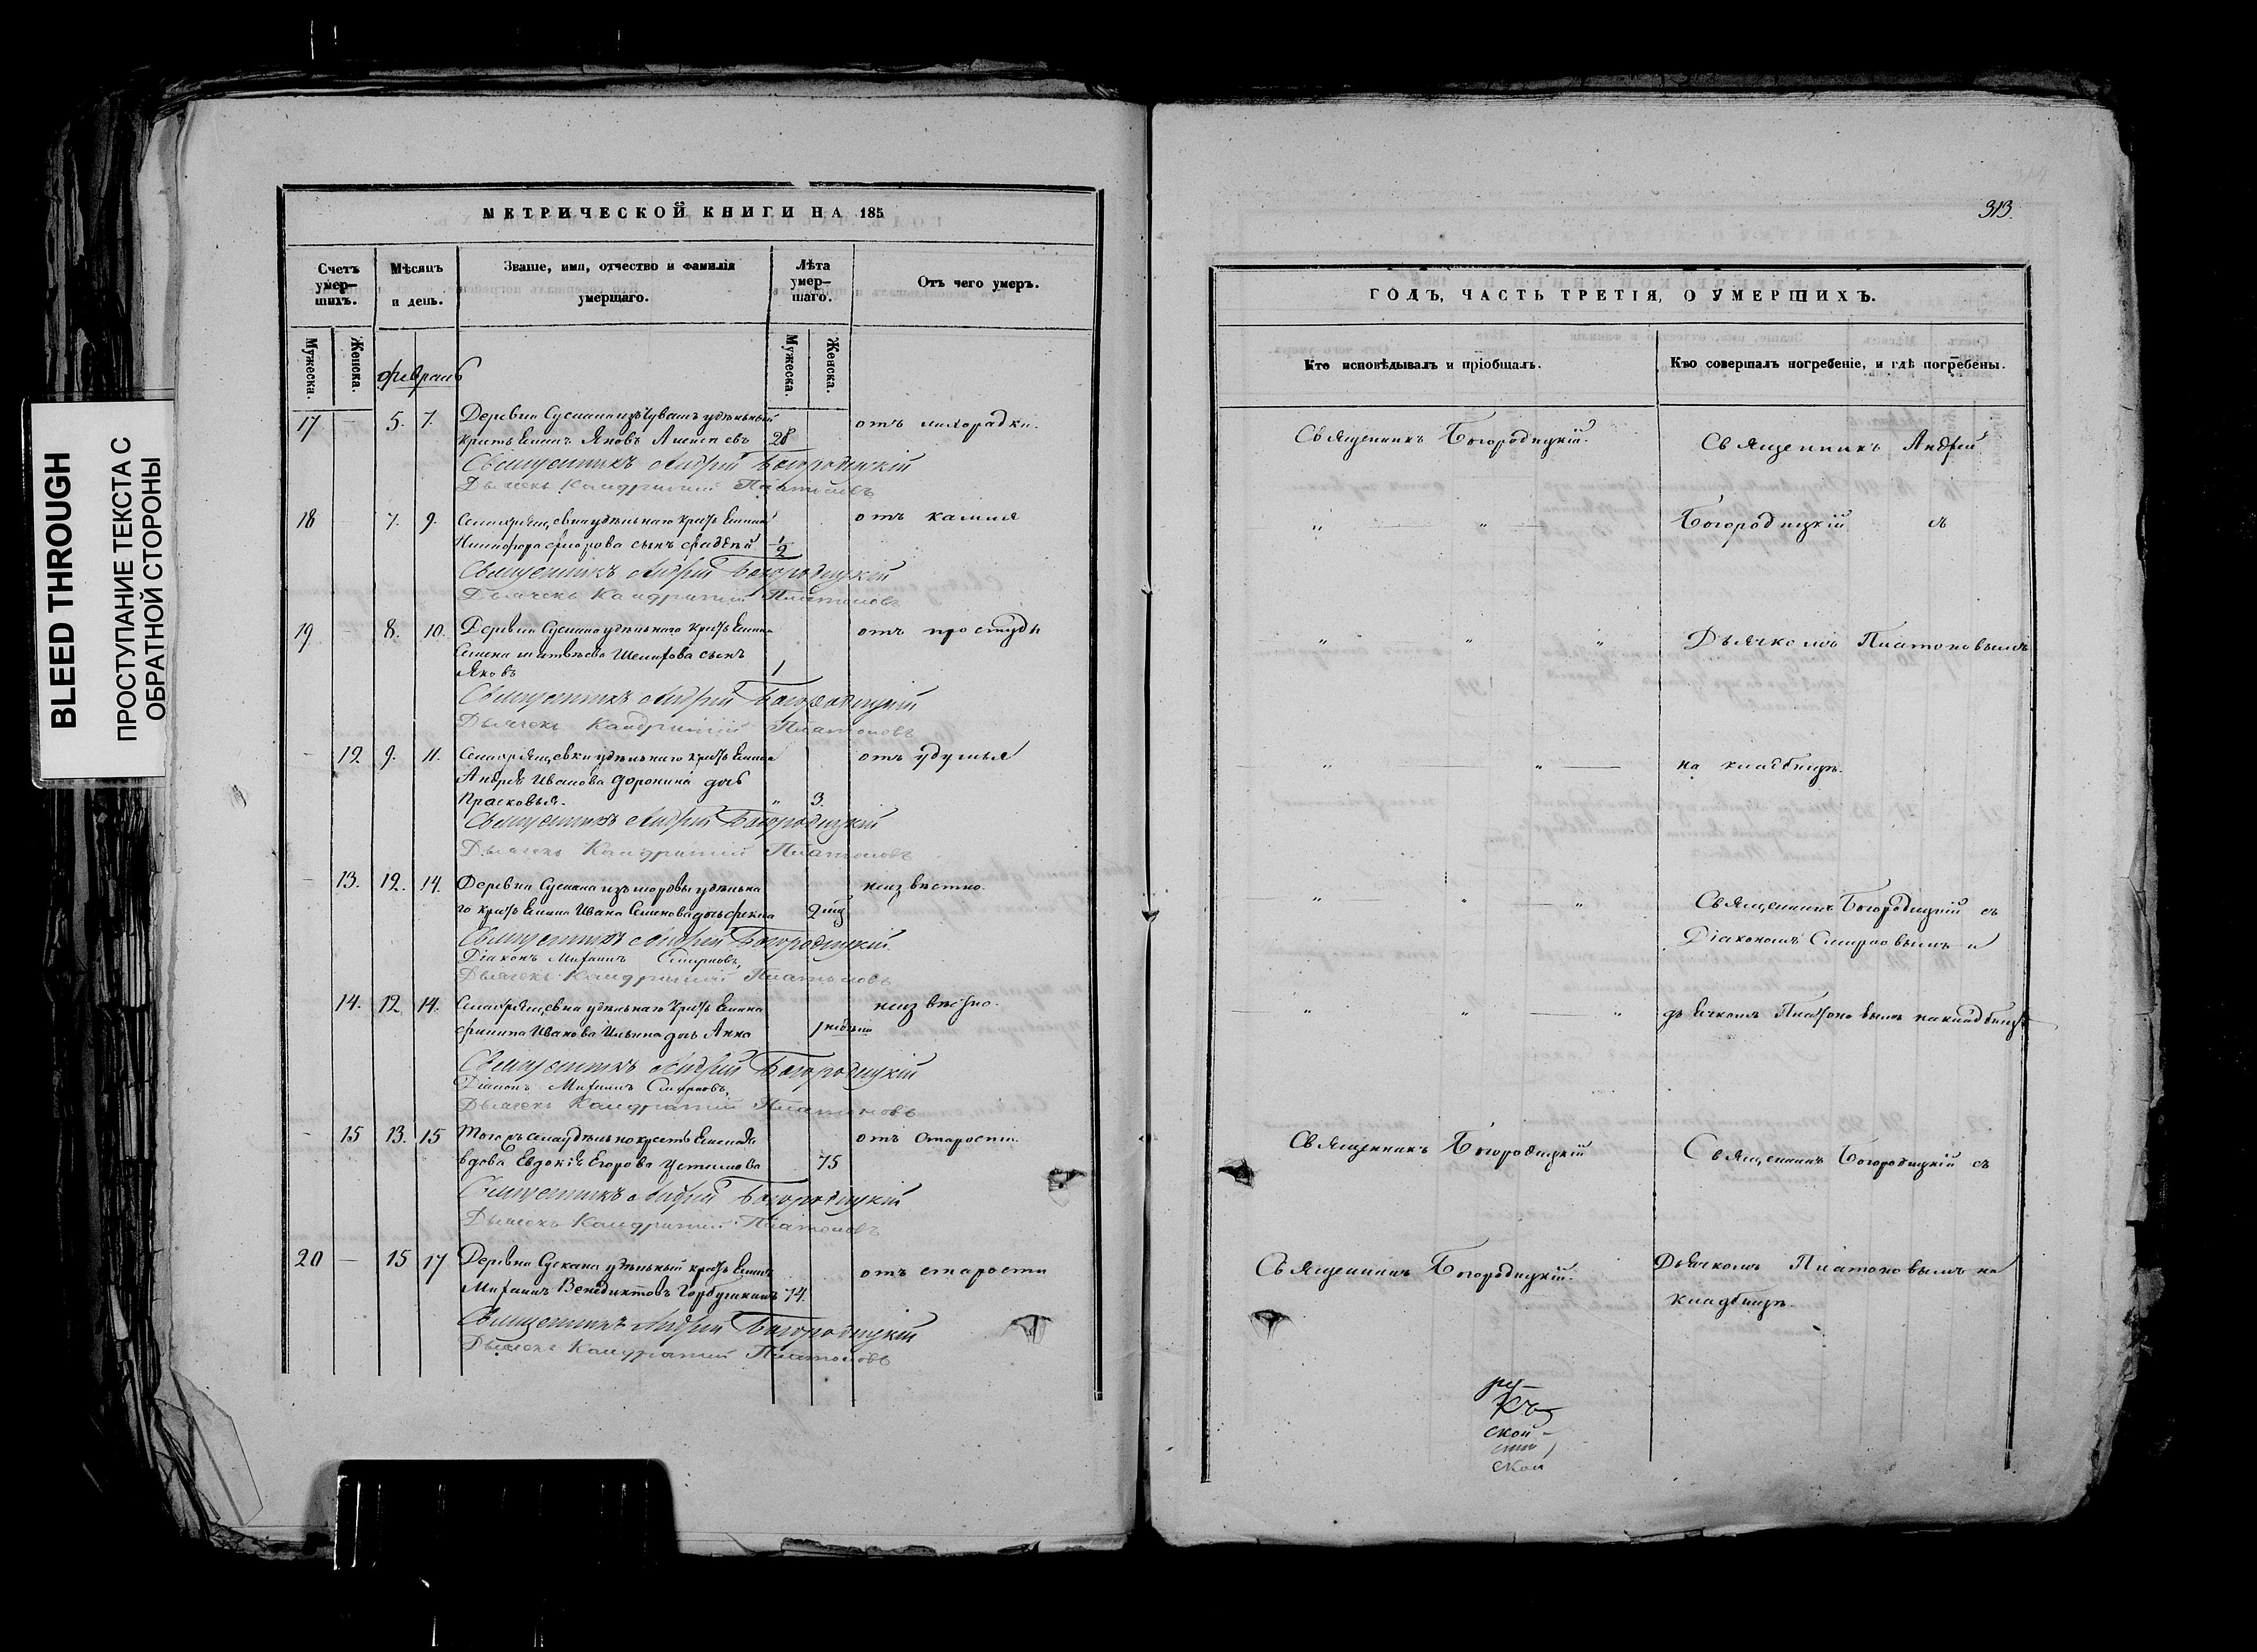 BLEED THROUGH
ПРОСТУПАНИЕ ТЕКСТА С
ОБРАТНОЙ СТОРОНЫ
МЕТРИЧЕСКОЙ КНИГИ НА 185
Счетъ умер-шихъ.
Мѣсяцъ и день.
Званіе, имя, отчество и фамилія умершаго.
Лѣта умер-шаго.
Отъ чего умеръ.
Мужеска.
Женска.
Мужеска.
Женска.
февраль
17 5. 7. Деревни Сускана изъ Чувашъ удѣльный
крестьянинъ Яковъ 28
Священникъ Андрей Богородицкій
Дьячекъ Кандратій Платоновъ
отъ лихорадки.
18 7. 9. удѣльнаго
сынъ 1/2
Священникъ Андрей Богородицкій
Дьячекъ Кандратій Платоновъ
отъ кашля
19 8. 10. Деревни Сускана удѣльнаго
сынъ
Яковъ 1
Священникъ Андрей Богородицкій
Дьячекъ Кандратій Платоновъ
отъ простуды
12 9. 11. удѣльнаго
Андрея Иванова Доронина дочь
Прасковья. 3.
Священникъ Андрей Богородицкій
Дьячекъ Кандратій Платоновъ
отъ удушья
13. 12. 14. Деревни Сускана изъ мордвы удѣльна
го Ивана Семенова дочь Фекла
Священникъ Андрей Богородицкій
Діаконъ Михаилъ Смирновъ,
Дьячекъ Кандратій Платоновъ
неизвѣстно.
14. 12 14. удѣльнаго
Филипа Иванова Ильина дочь Анна 1 недѣли
Священникъ Андрей Богородицкій
Діаконъ Михаилъ Смирновъ,
Дьячекъ Кандратій Платоновъ
неизвѣстно.
15 13. 15 Тогожъ села
вдова Евдокія Егорова 75
Священникъ Андрей Богородицкій
Дьячекъ Кандратій Платоновъ
отъ старости.
20 15 17 Деревни Сускана удѣльный
Михаилъ Венедиктовъ Горбушкинъ 74.
Священникъ Андрей Богородицкій
Дьячекъ Кандратій Платоновъ
отъ старости
313.
ГОДЪ, ЧАСТЬ ТРЕТІЯ, О УМЕРШИХЪ.
Кто исповѣдывалъ и пріобщалъ.
Кто совершалъ погребеніе, и гдѣ погребены.
Священникъ Богородицкій.
Священникъ Андрей
Богородицкій съ
Дьячкомъ Платоновымъ
на кладбищѣ.
Священникъ Богородицкій съ
Діакономъ Смирновымъ и
дьячкомъ Платоновымъ на кладбищѣ
Священникъ Богородицкій
Священникъ Богородицкій съ
Священникъ Богородицкій.
Дьячкомъ Платоновымъ на
кладбищѣ.
ской